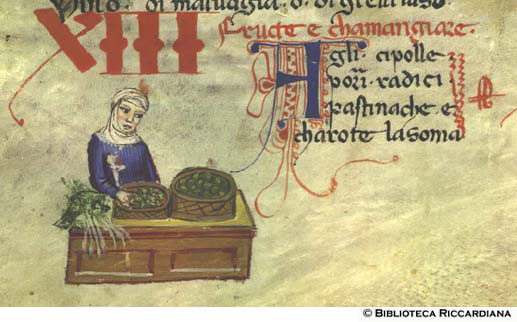 di malvagia. o. di
XIII
Fructe e chamangiare.
Agli. cipolle
porri. radici
pastinache. e
charote la soma
© BIBLIOTECA RICCARDIANA